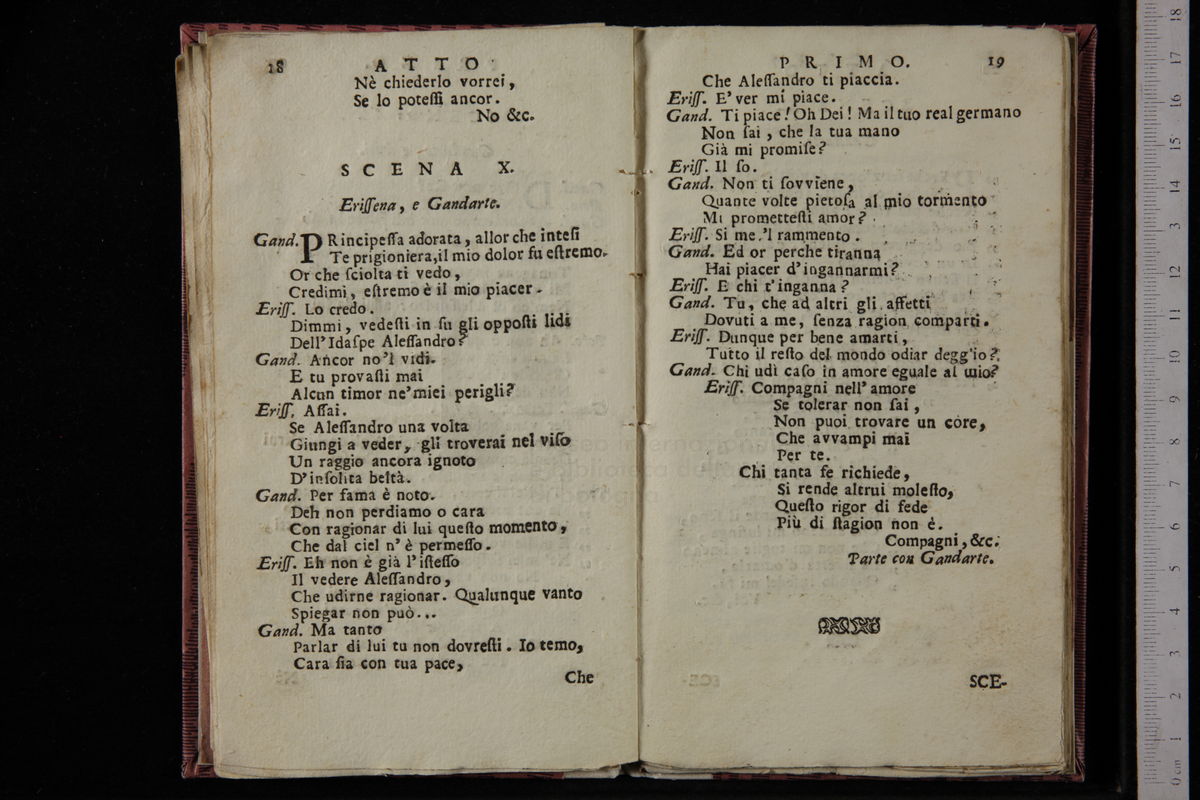 18 ATTO
Nè chiederlo vorrei,
Se lo poteſſi ancor.
No &c.
SCENA X.
Eriſſena, e Gandarte.
Gand. PRincipeſſa adorata, allor che inteſi
Te prigioniera, il mio dolor fu eſtremo.
Or che ſciolta ti vedo,
Credimi, eſtremo è il mio piacer.
Eriſſ. Lo credo.
Dimmi, vedeſti in ſu gli oppoſti lidi
Dell'Idaſpe Aleſſandro?
Gand. Ancor no'l vidi.
E tu provaſti mai
Alcun timor ne'miei perigli?
Eriſſ. Aſſai.
Se Aleſſandro una volta
Giungi a veder, gli troverai nel viſo
Un raggio ancora ignoto
D'inſolita beltà.
Gand. Per fama è noto.
Deh non perdiamo o cara
Con ragionar di lui queſto momento,
Che dal ciel n'è permeſſo.
Eriſſ. Eh non è già l'iſteſſo
Il vedere Aleſſandro,
Che udirne ragionar. Qualunque vanto
Spiegar non può...
Gand. Ma tanto
Parlar di lui tu non dovreſti. Io temo,
Cara ſia con tua pace,
Che
PRIMO. 19
Che Aleſſandro ti piaccia.
Eriſſ. E'ver mi piace.
Gand. Ti piace! Oh Dei! Ma il tuo real germano
Non ſai, che la tua mano
Già mi promiſe?
Eriſſ. Il ſo.
Gand. Non ti ſovviene,
Quante volte pietoſa al mio tormento
Mi prometteſti amor?
Eriſſ. Si me.'l rammento.
Gand. Ed or perche tiranna
Hai piacer d'ingannarmi?
Eriſſ. E chi t'inganna?
Gand. Tu, che ad altri gli affetti
Dovuti a me, ſenza ragion comparti.
Eriſſ. Dunque per bene amarti,
Tutto il reſto del mondo odiar degg'io?
Gand. Chi udì caſo in amore eguale al mio?
Eriſſ. Compagni nell'amore
Se tolerar non ſai,
Non puoi trovare un core,
Che avvampi mai
Per te.
Chi tanta fe richiede,
Si rende altrui moleſto,
Queſto rigor di fede
Più di ſtagion non è.
Compagni, &c.
Parte con Gandarte.
SCE-